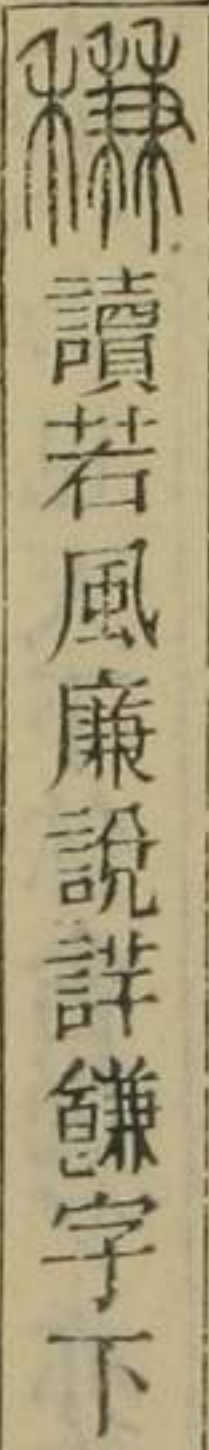 稴讀若風廉說詳䭑字下